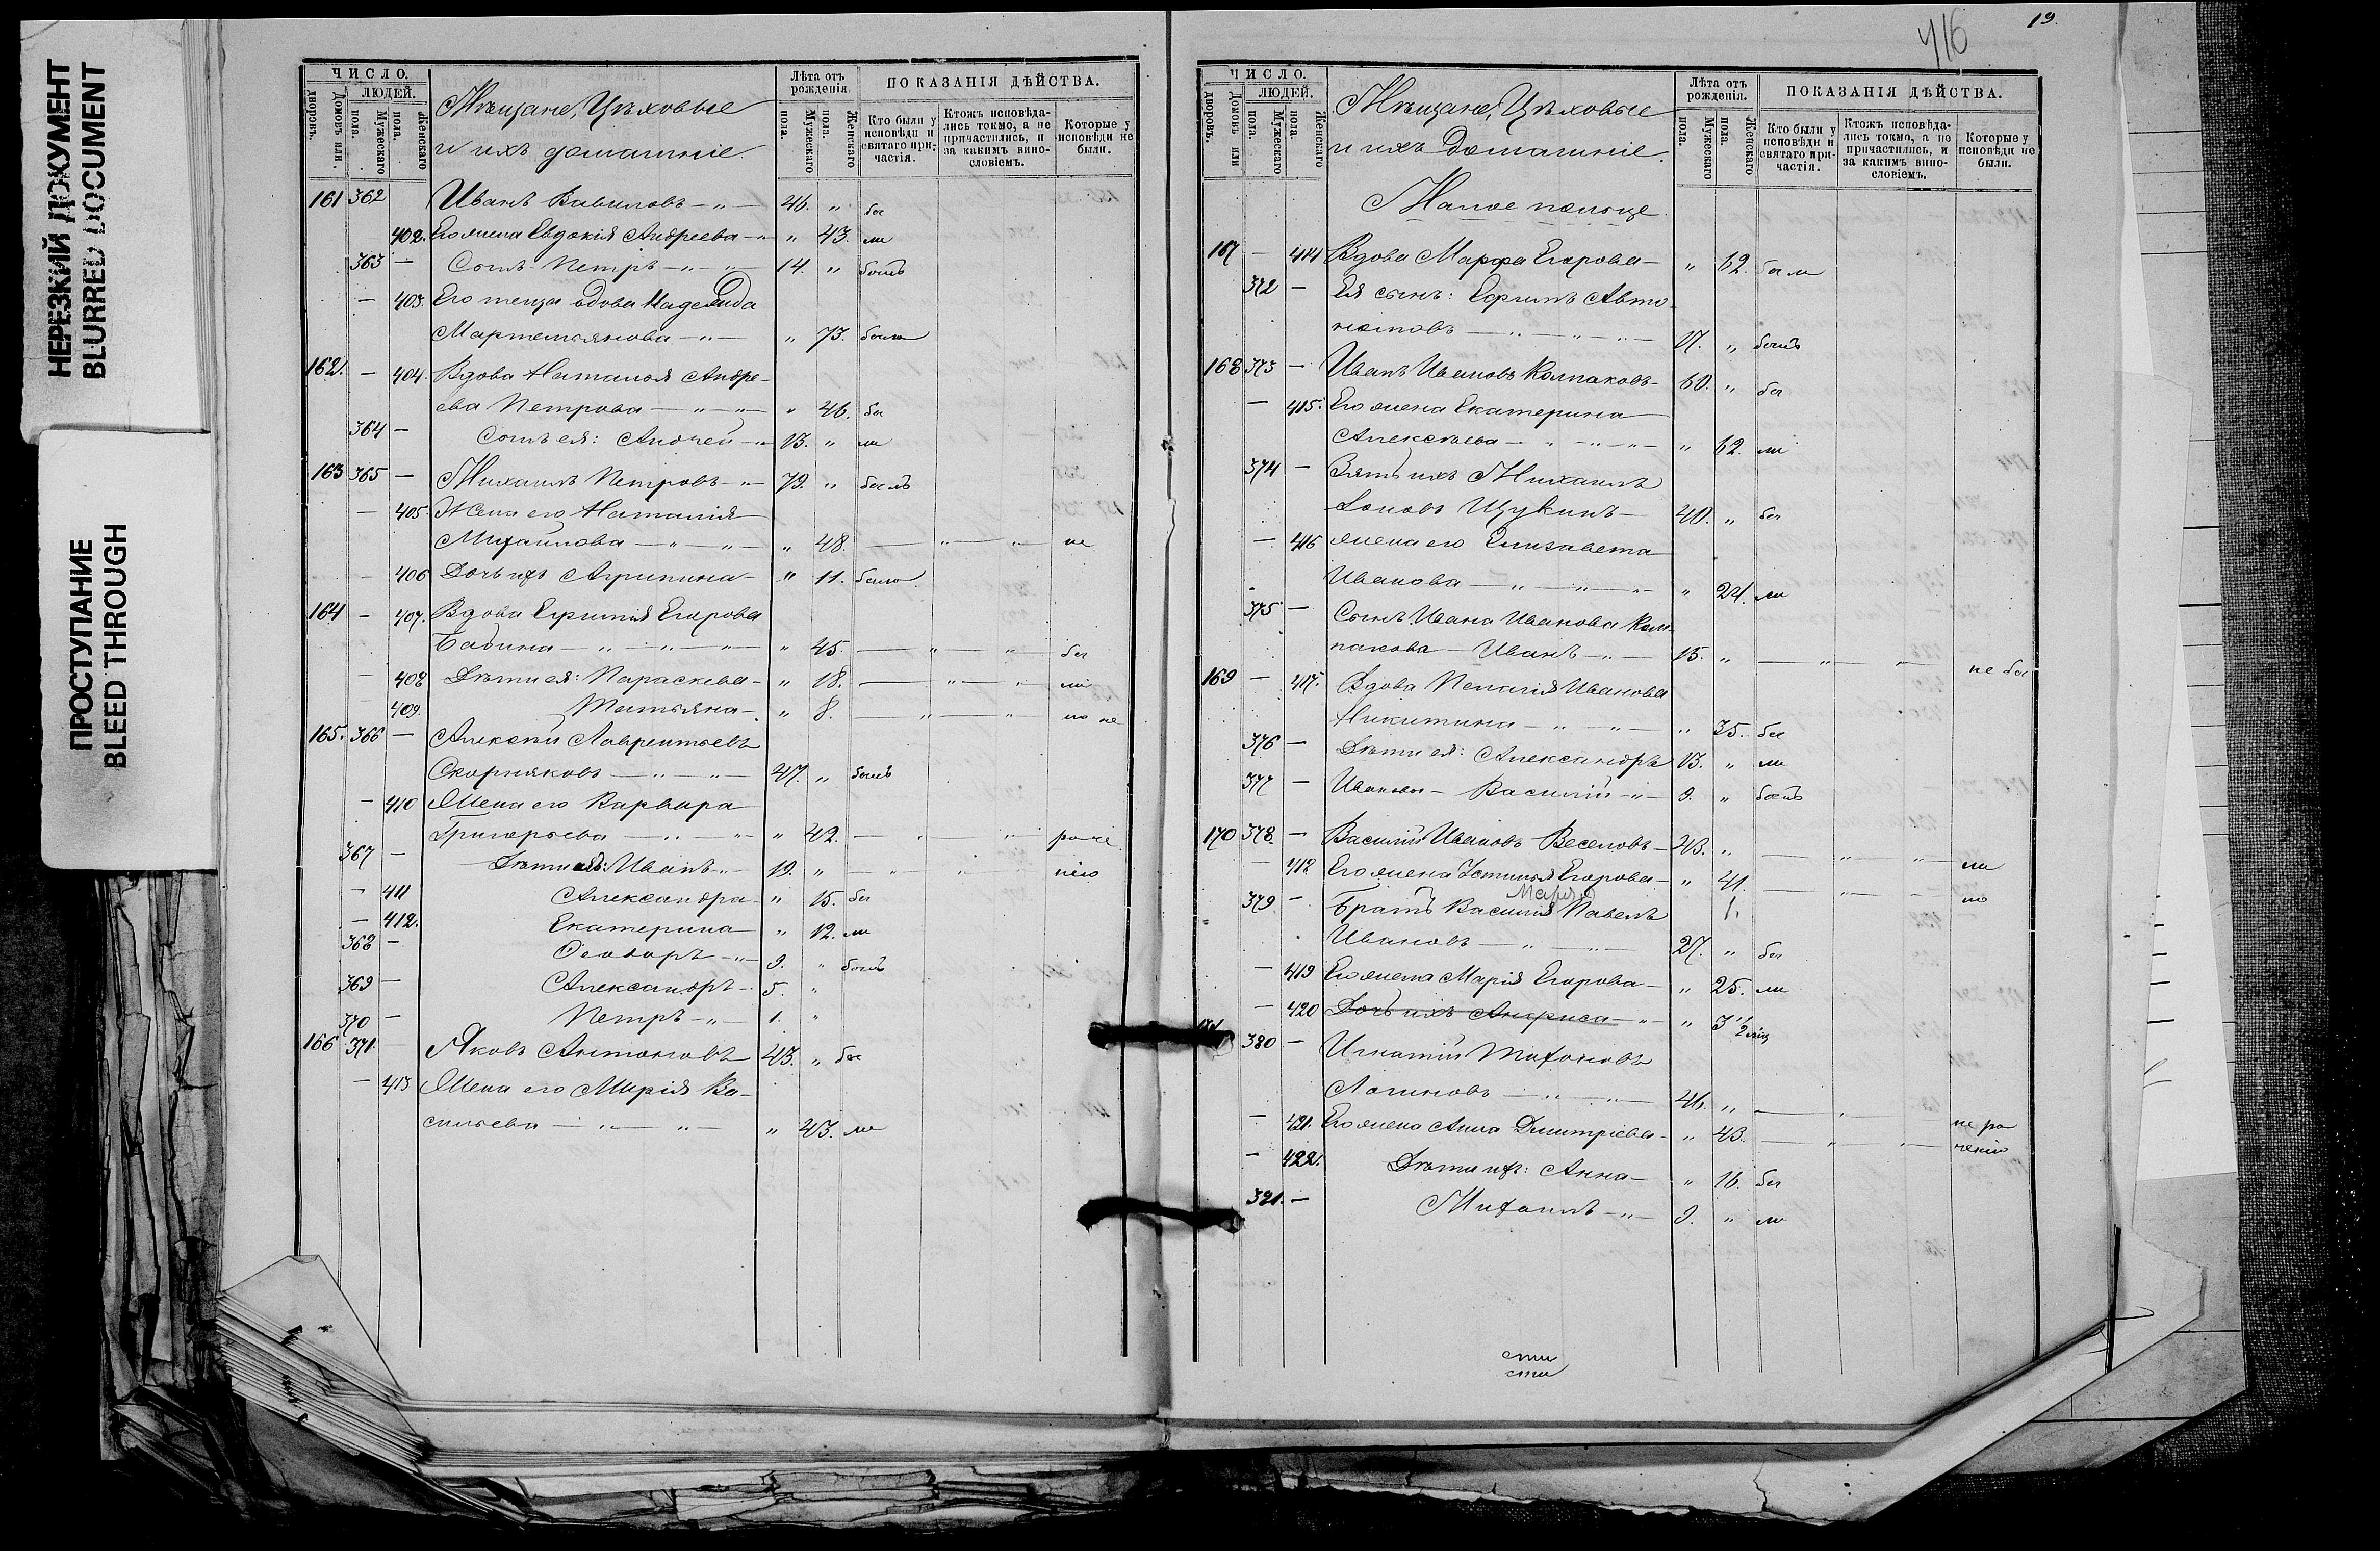 НЕРЕЗКИЙ ДОКУМЕНТ
BLURRED DOCUMENT
ПРОСТУПАНИЕ
BLEED THROUGH
ЧИСЛО.
ЛЮДЕЙ.
Домовъ или дворовъ.
Мужескаго пола.
Женскаго пола.
Мѣщане, Цѣховые
и ихъ домашніе
Лѣта отъ рожденія.
Мужескаго пола.
Женскаго пола.
ПОКАЗАНІЯ ДѢЙСТВА.
Кто были у исповѣди и святаго причастія.
Ктожъ исповѣдались токмо, а не причастились, и за какимъ винословіемъ.
Которые у исповѣди не были.
161 362 Иванъ Вавиловъ — „ — 46. „ бы
402. Его жена Евдокія Андреева — „ 43. ли
363 — Сынъ Петръ — „ — „ — 14. „ былъ
— 403. Его теща вдова Надежда
Мартемьянова — „ — „ 73. была
162. — 404. Вдова Наталія Андре-
ева Петрова — „ — „ — „ 46. бы
364 — Сынъ ея: Андрей — „ 13. „ ли
163 365 — Михаилъ Петровъ — „ — 79. „ былъ
— 405. Жена его Наталія
Михайлова — „ — „ — „ 48. — „ — „ не
— 406 Дочь ихъ Агрипина — „ 11. была
164 — 407. Вдова Евфимія Егорова
Бабина — „ — „ — „ — „ 45. — „ — „ бы
— 408 Дѣти ея: Параскева — „ 18. — „ — „ ли
— 409. Татьяна — „ 8. — „ — „ по не
165. 366 — Алексѣй Лаврентьевъ
Скорняковъ — „ — „ — 47. „ былъ
— 410 Жена его Варвара
Григорьева — „ — „ — „ 42. — „ — „ раче
367 — Дѣти ихъ: Иванъ — „ — 19. „ — „ — „ нію
— 411 Александра — „ 15. бы
— 412. Екатерина — „ 12. ли
368 — Ѳеодоръ — „ — 9. „ былъ
369 — Александръ — 5. „
370 — Петръ — „ — 1. „
166 371. Яковъ Антоновъ 43. „ бы
— 413 Жена его Марія Ва-
сильева — „ — „ — „ 43. ли
416
19.
ЧИСЛО.
ЛЮДЕЙ.
Домовъ или дворовъ.
Мужескаго пола.
Женскаго пола.
Мѣщане, Цѣховые
и ихъ домашніе.
Лѣта отъ рожденія.
Мужескаго пола.
Женскаго пола.
ПОКАЗАНІЯ ДѢЙСТВА.
Кто были у исповѣди и святаго причастія.
Ктожъ исповѣдались токмо, а не причастились, и за какимъ винословіемъ.
Которые у исповѣди не были.
Малое польце
167 — 414 Вдова Марфа Егорова — „ 62. были
372 — Ея сынъ: Ефимъ Авто-
номовъ — „ — „ — „ — 17. „ былъ
168 373 — Иванъ Ивановъ Колпаковъ — 60. „ бы
— 415. Его жена Екатерина
Алексѣева — „ — „ — „ 62. ли
374 — Зять ихъ Михаилъ
Щукинъ — 40. „ бы
— 416 жена его Елизавета
Иванова — „ — „ — „ 24. ли
375 — Сынъ Ивана Иванова Кол-
пакова — Иванъ — „ — 15. „ — „ — „ не бы
169 — 417. Вдова Пелагія Иванова
Никитина — „ — „ — „ 35. бы
376 — Дѣти ея: Александръ 13. „ ли
377 — Ивановы — Василій — „ — 9. „ былъ
170 378 — Василій Ивановъ Веселовъ — 43. „ — „ — „ ли
— 418 Его жена Устинья Егорова — „ 41. — „ — „ по
Марья 1.
379 — Братъ Василія Павелъ
Ивановъ — „ — „ — 27. „ бы
— 419 Его жена Марія Егорова — „ 25. ли
— 420 Дочь ихъ Анфиса — „ — „ 3 1/2 мѣц
171 380 — Игнатій Тихоновъ
Логиновъ — „ — „ — 46. „ — „ не ра
— 421. Его жена Анна Дмитріева — „ 43. — „ — „ ченію
— 422. Дѣти ихъ: Анна — „ 16. бы
381. — Михаилъ — „ — 9. „ ли
сти
сти